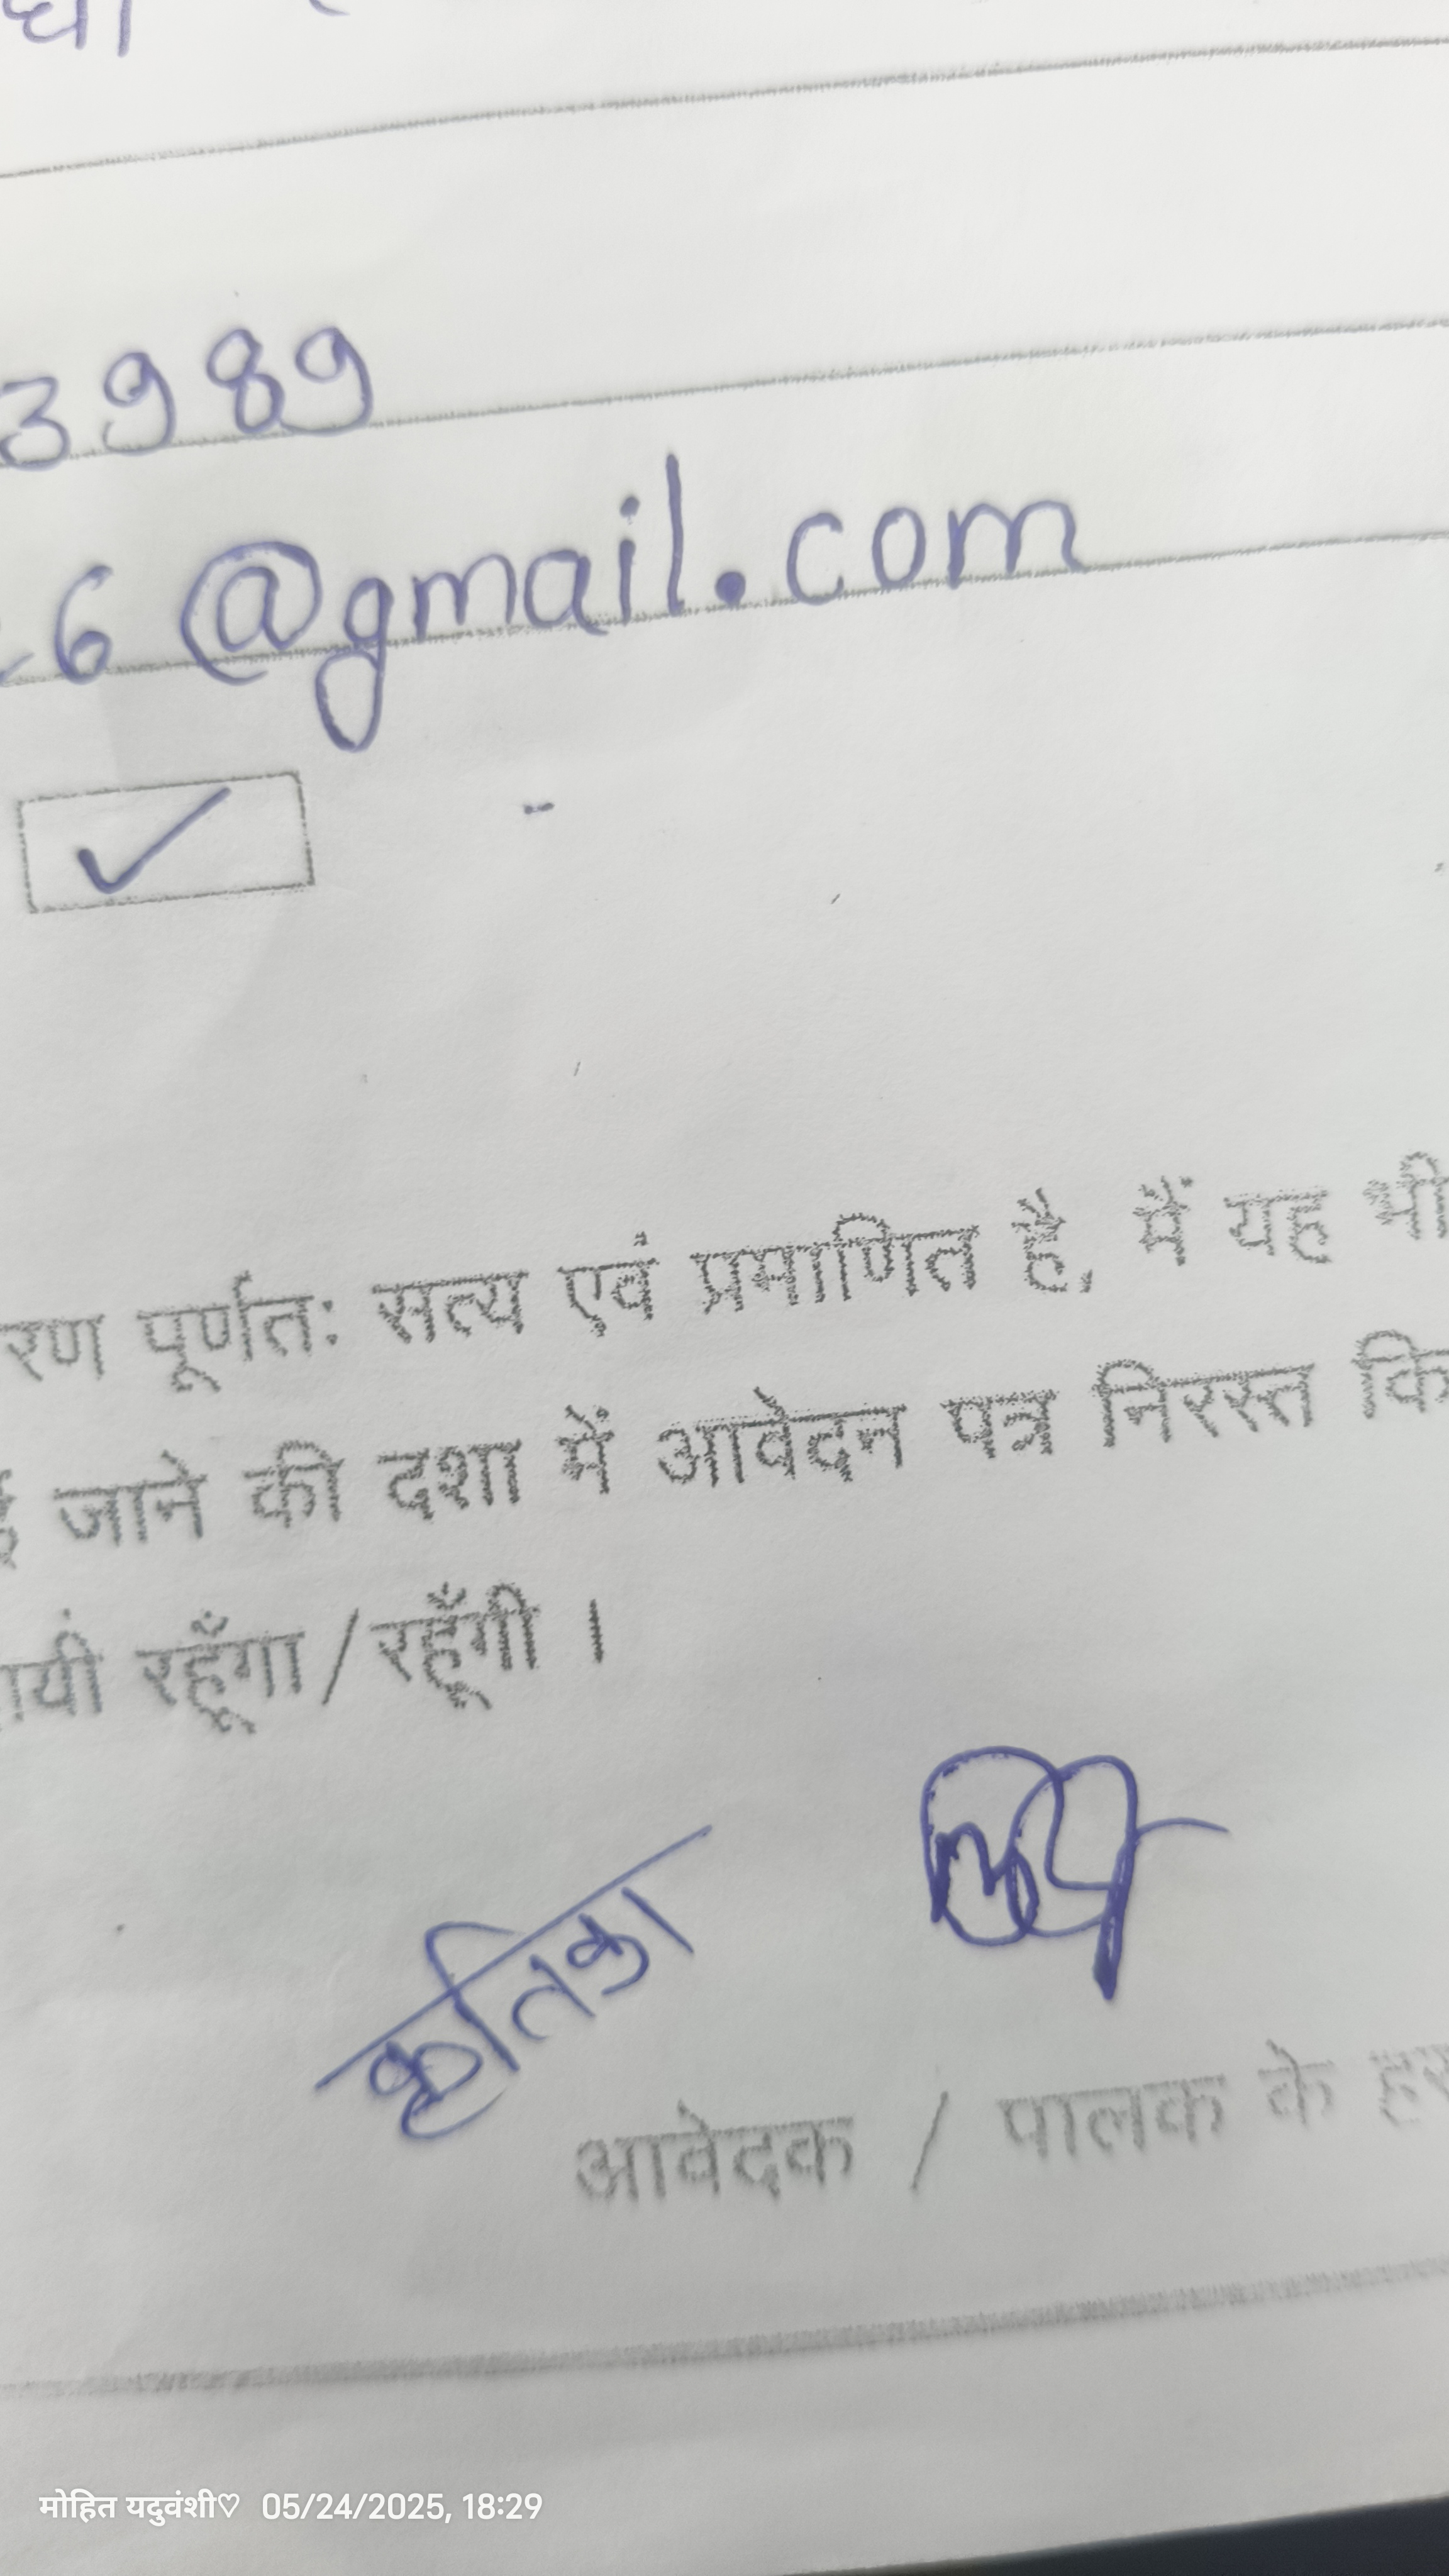 3989
6@gmail.com
रण पूर्णतः सत्य एवं प्रमाणित है, मैं यह भी
जाने की दशा में आवेदन पत्र निरस्त कि
यी रहूँगा/रहूँगी ।
कृतिका
आवेदक / पालक के हस
मोहित यदुवंशी♡ 05/24/2025, 18:29